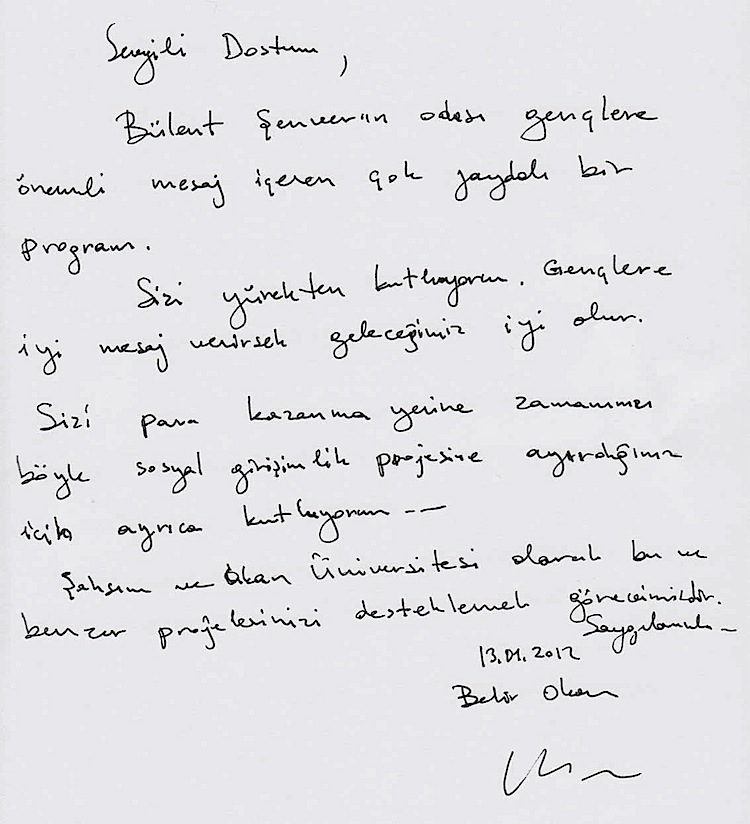 Sevgili Dostum,
Bülent Şenver'in odası gençlere
önemli mesaj içeren çok faydalı bir
program.
Sizi yürekten kutluyorum. Gençlere
iyi mesaj verirsek geleceğimiz iyi olur.
Sizi para kazanma yerine zamanınızı
böyle sosyal girişimlik projesine ayırdığınız
için ayrıca kutluyorum ---
Şahsım ve Okan Üniversitesi olarak bu ve
benzer projelerinizi desteklemek görevimizdir.
Saygılarımla -
13.01.2012
Bekir Okan